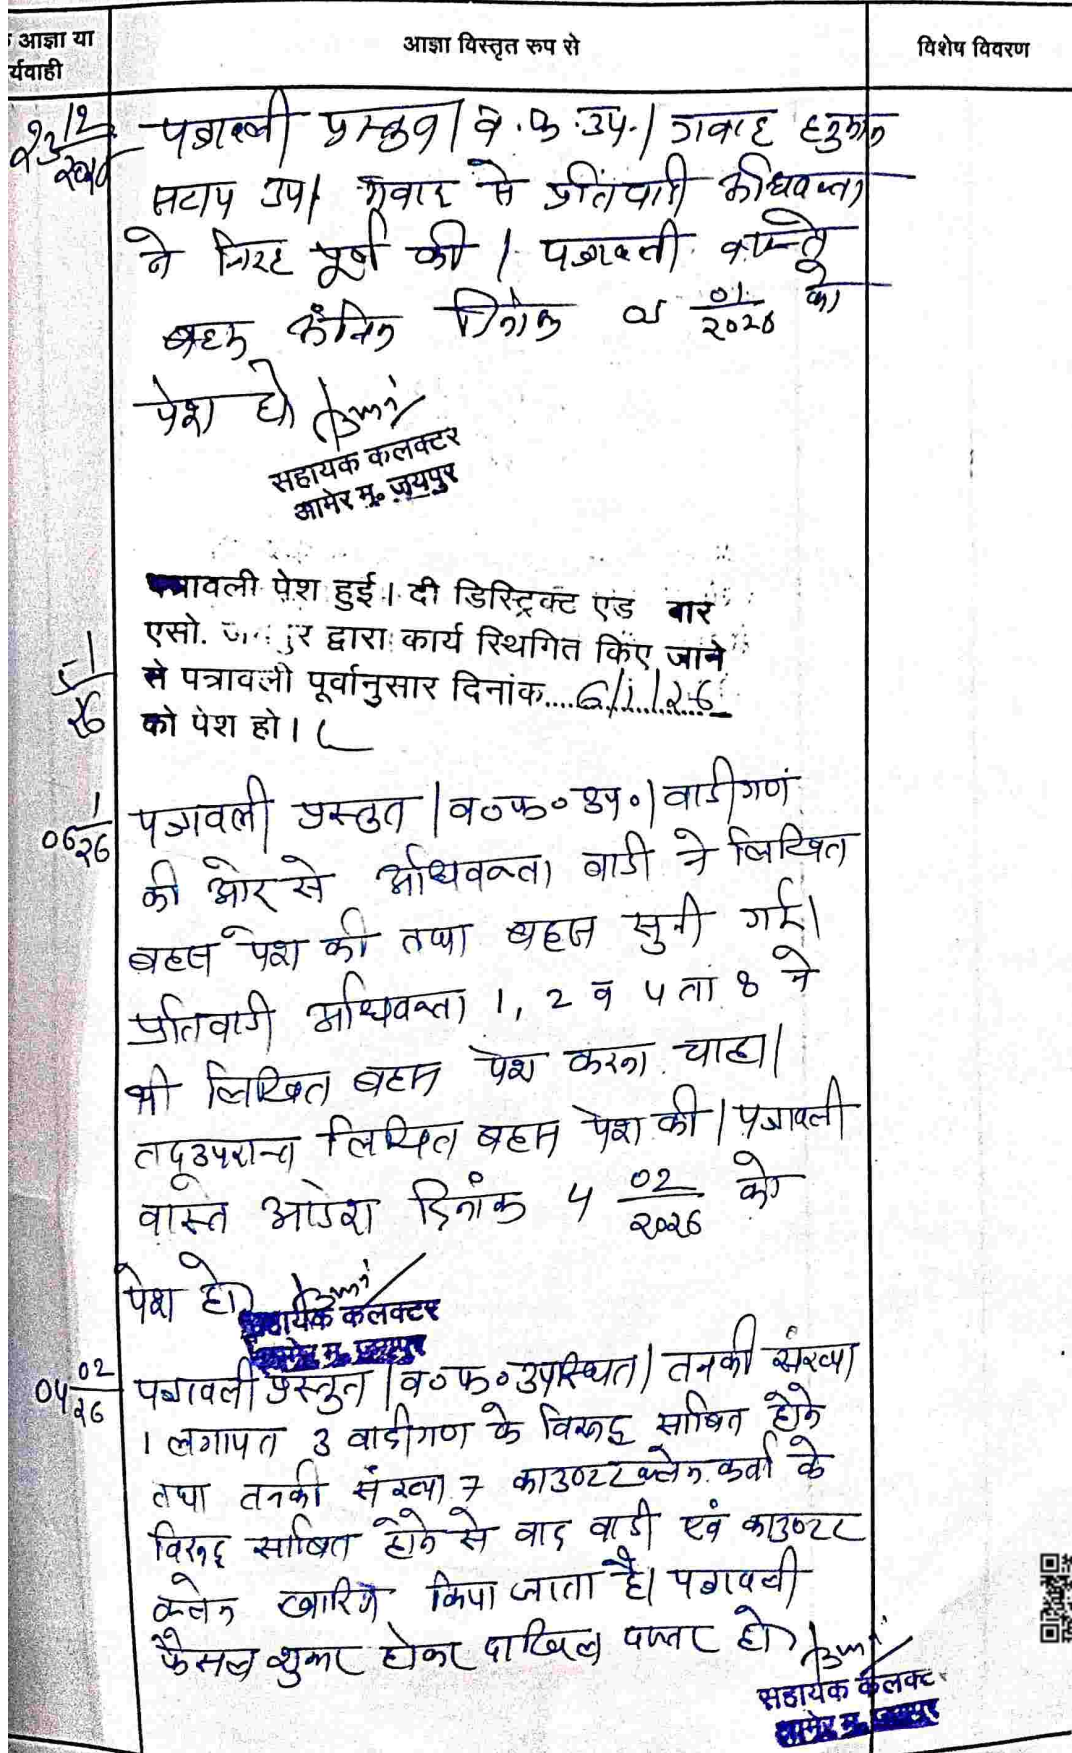 आज्ञा या
र्यवाही
आज्ञा विस्तृत रुप से
विशेष विवरण
23/12
पत्रावली प्रस्तुत। व.फ.उप.। गवाह हनुमान
उप। गवाह से प्रतिवादी अधिवक्ता
ने जिरह पूर्ण की। पत्रावली वास्ते
बहस अंतिम दिनांक 5 01/2026 को
पेश हो
सहायक कलक्टर
आमेर मु. जयपुर
5/1/26
पत्रावली पेश हुई। दी डिस्ट्रिक्ट एड बार
एसो. द्वारा कार्य स्थगित किए जाने
से पत्रावली पूर्वानुसार दिनांक....6/1/26
को पेश हो।
06 1/26
पत्रावली प्रस्तुत। व०फ०उप०। वादीगण
की ओर से अधिवक्ता वादी ने लिखित
बहस पेश की तथा बहस सुनी गई।
प्रतिवादी अधिवक्ता 1, 2 व 4 ता 8 ने
भी लिखित बहस पेश करना चाहा।
तदउपरान्त लिखित बहस पेश की। पत्रावली
वास्ते आदेश दिनांक 4 02/2026 को
पेश हो
सहायक कलक्टर
आमेर मु. जयपुर
04 02/26
पत्रावली प्रस्तुत। व०फ०उपस्थित। तनकी संख्या
1 लगायत 3 वादीगण के विरूद्ध साबित होने
तथा तनकी संख्या 7 काउण्टर क्लेम कर्ता के
विरूद्ध साबित होने से वाद वादी एवं काउण्टर
क्लेम खारिज किया जाता है। पत्रावली
फैसल शुमार होकर दाखिल दफ्तर हो
सहायक कलक्ट
आमेर मु. जयपुर